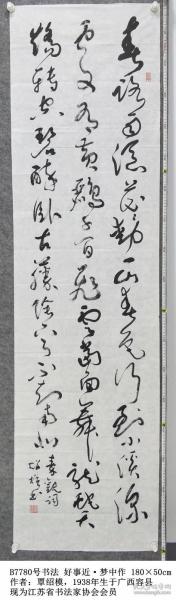 春路雨添花動一山春色行到小溪深
處有黄鸝千百飛雲當面舞龍蛇夭
矯轉空碧醉卧古藤陰下了不知南北
秦觀詞
B7780号书法 好事近·梦中作 180×50cm
作者：覃绍模，1938年生于广西容县
现为江苏省书法家协会会员